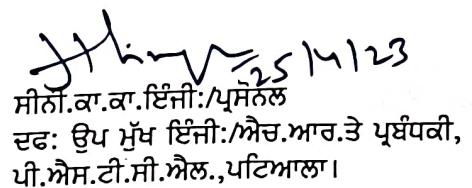 25/4/23
ਸੀਨੀ.ਕਾ.ਕਾ.ਇੰਜੀ:/ਪ੍ਰਸੋਨਲ
ਦਫ: ਉਪ ਮੁੱਖ ਇੰਜੀ:/ਐਚ.ਆਰ.ਤੇ ਪ੍ਰਬੰਧਕੀ,
ਪੀ.ਐਸ.ਟੀ.ਸੀ.ਐਲ.,ਪਟਿਆਲਾ।